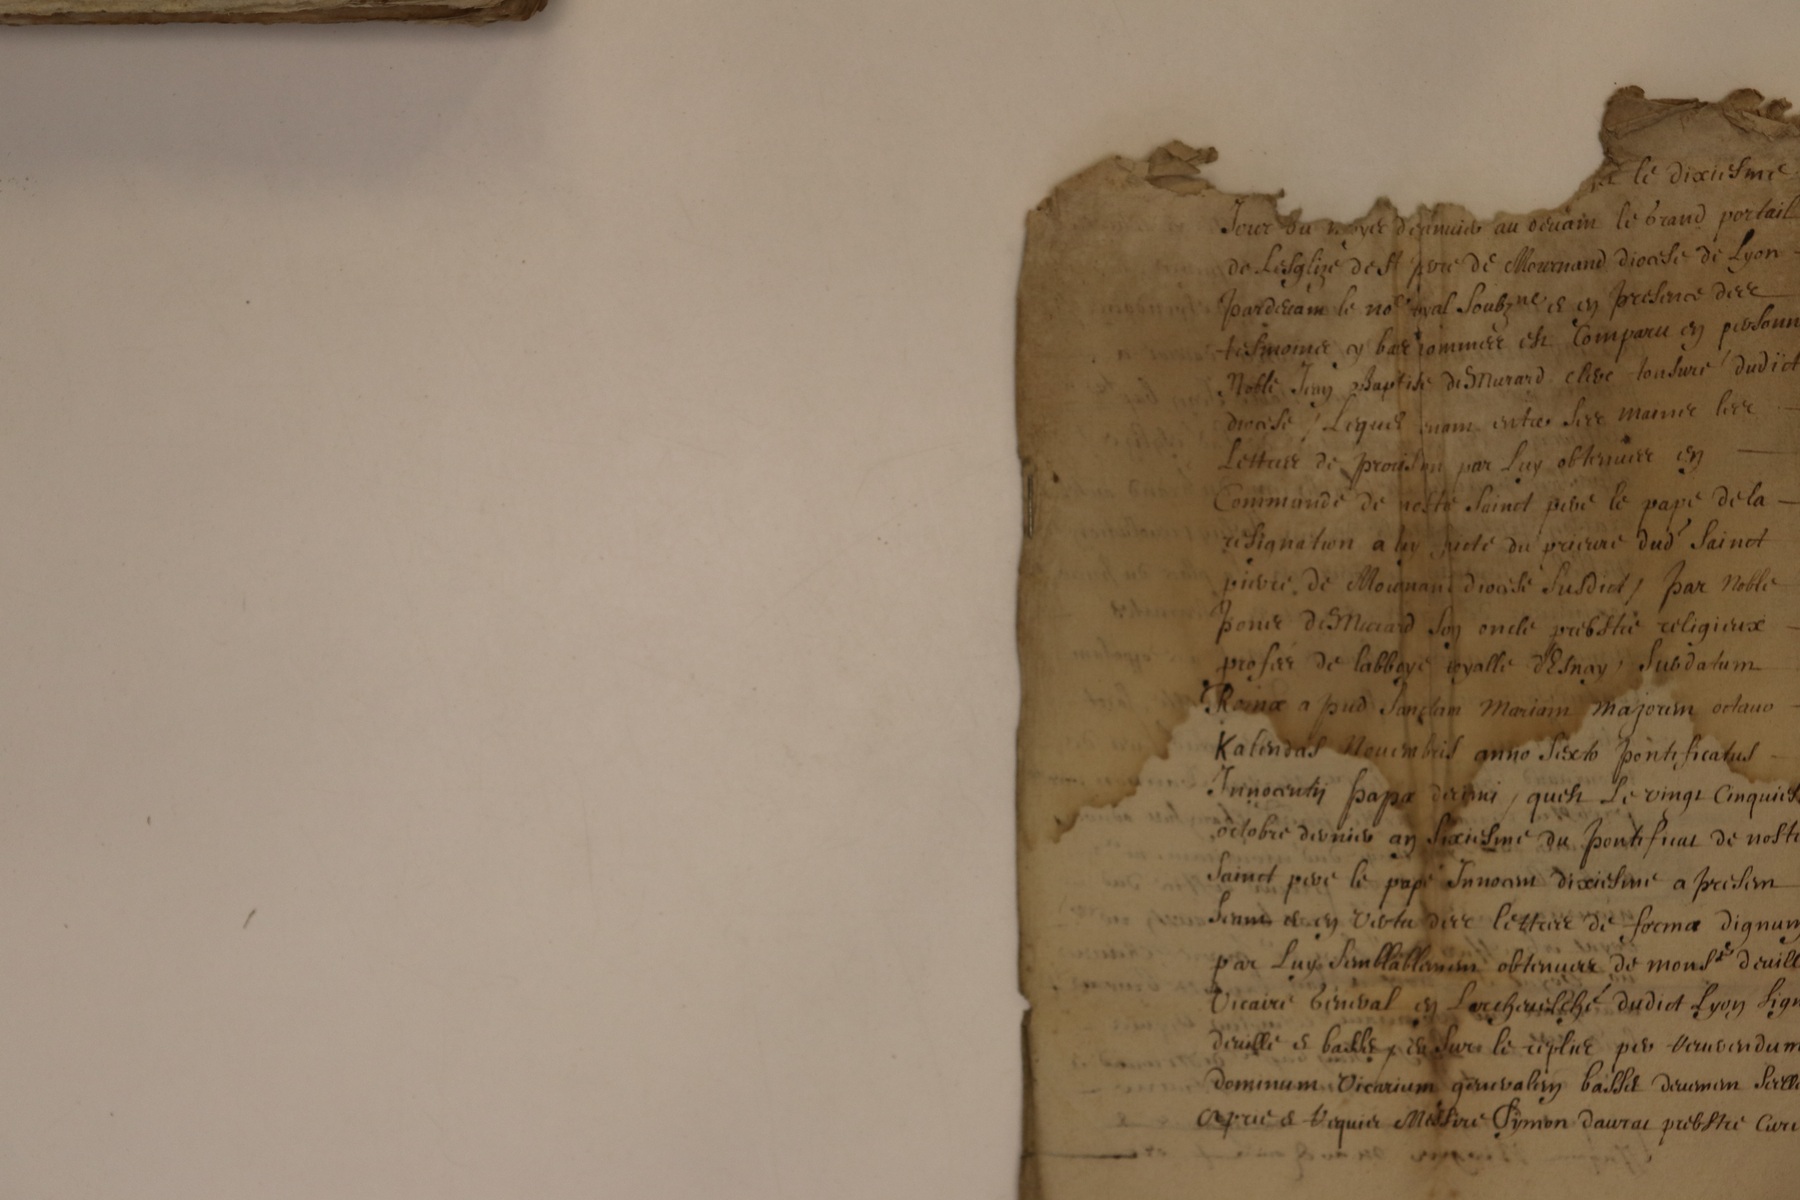 le dixiesme
Jour du moys dernier au devam le Grand portail
de Lesglize de St pere de Mournand diocese de Lyon
pardevam le nore royal soubzne et en presence des
tesmoins cy bas nommes est Comparu en personn
Noble Jean Baptiste de Murard clerc tonsure dudict
diocese / Lequel enam entre ses mains les
Lettres de provision par Luy obtenues en
Commande de nostre Sainct pere le pape de la
resignation a luy du prieure dud Sainct
pierre de Mournand diocese susdict / par Noble
Pons de Murard son oncle prebstre religieux
profes de labbaye royalle d'Esnay / Subdatum
Romæ apud Sanctam Mariam majorem octavo
Kalendas Novembris anno sexto pontificatus
Innocentij papæ decimi / quest Le vingt cinquies
octobre dernier an sixiesme du pontificat de nostre
Sainct pere le pape Innocem dixiesme a presem
Seam et en vertu des lettres de formæ dignum
par Luy semblablemem obtenues de monsr deville
Vicaire General en Larchevesché dudict Lyon sign
deville et basset et sur le replis per Reverendum
dominum Vicarium generalem basset deuemem scelle
A prie & requis Messire Symon daurat prebstre Cure